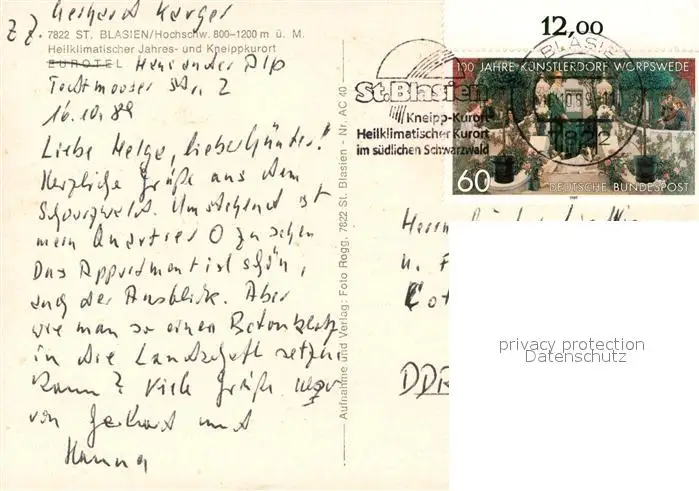 Gerhard Karger
z. Z. 7822 ST. BLASIEN/Hochschw. 800–1200 m ü. M.
Heilklimatischer Jahres- und Kneippkurort
EUROTEL Haus an der Alp
Todtmooser Str. 2
16.10.89
Liebe Helga, lieber Günter!
Herzliche Grüße aus dem
Schwarzwald. Umstehend ist
mein Quartier O zu sehen
Das Appartment ist schön,
auch der Ausblick. Aber
wie man so einen Betonklotz
in die Landschaft setzen
kann? Viele Grüße
von Gerhard und
Hanna
Aufnahme und Verlag: Foto Rogg, 7822 St. Blasien - Nr. AC 40
12,00
100 JAHRE KÜNSTLERDORF WORPSWEDE
60
DEUTSCHE BUNDESPOST
1989
ST. BLASIEN
7822
St. Blasien
Kneipp-Kurort
Heilklimatischer Kurort
im südlichen Schwarzwald
Herrn
u. F
Cot
DDR
privacy protection
Datenschutz